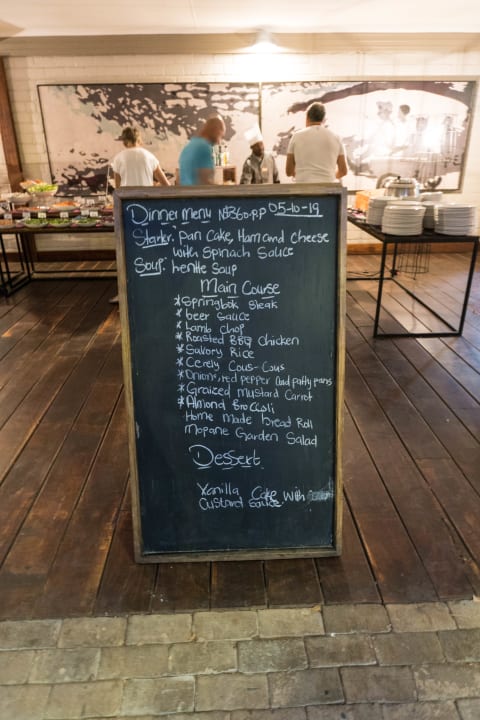 Dinner menu N$360-P.P 05-10-19
Starter: pan Cake, Ham and Cheese
with Spinach Sauce
Soup: lentle Soup
Main Course
*Springbok Steak
*beer Sauce
*Lamb Chop
*Roasted BBQ Chicken
*Savory Rice
*Cerely Cous-Cous
*Onions, red pepper and patty pans
*Graized Mustard Carrot
*Almond Broccoli
Home Made bread Roll
Mopane Garden Salad
Dessert
Vanilla Cake with
Custard Sauce